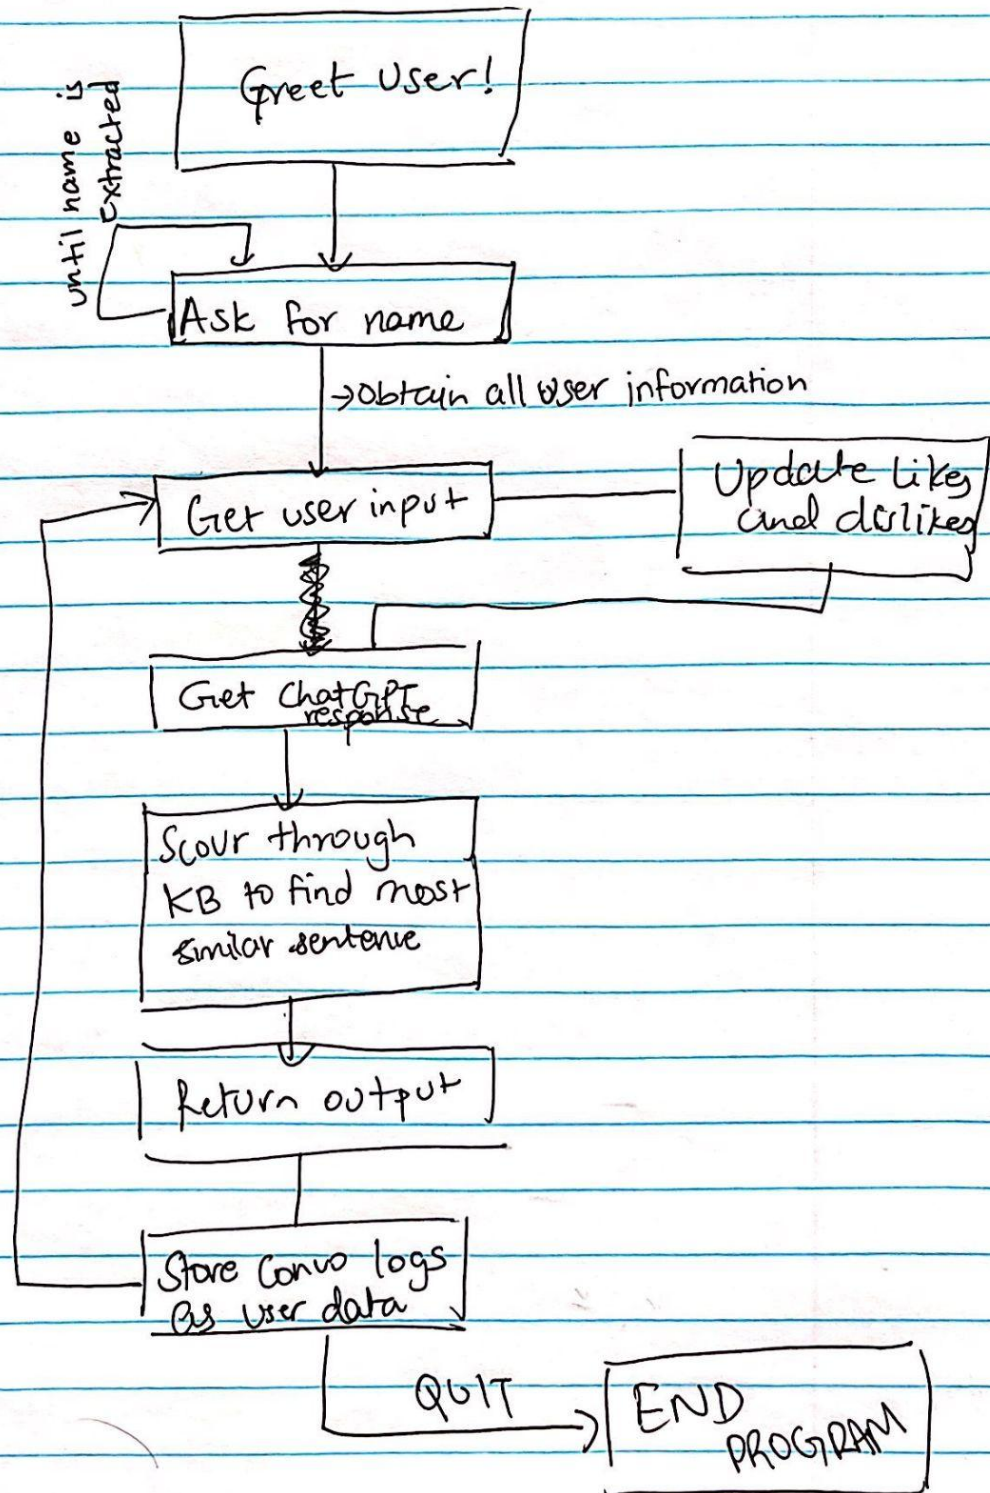 Greet User!
until name is
extracted
Ask for name
→Obtain all user information
Get user input
Update Likes
and dislikes
Get ChatGPT
response
Scour through
KB to find most
similar sentence
Return output
Store Convo logs
as user data
QUIT
END
PROGRAM